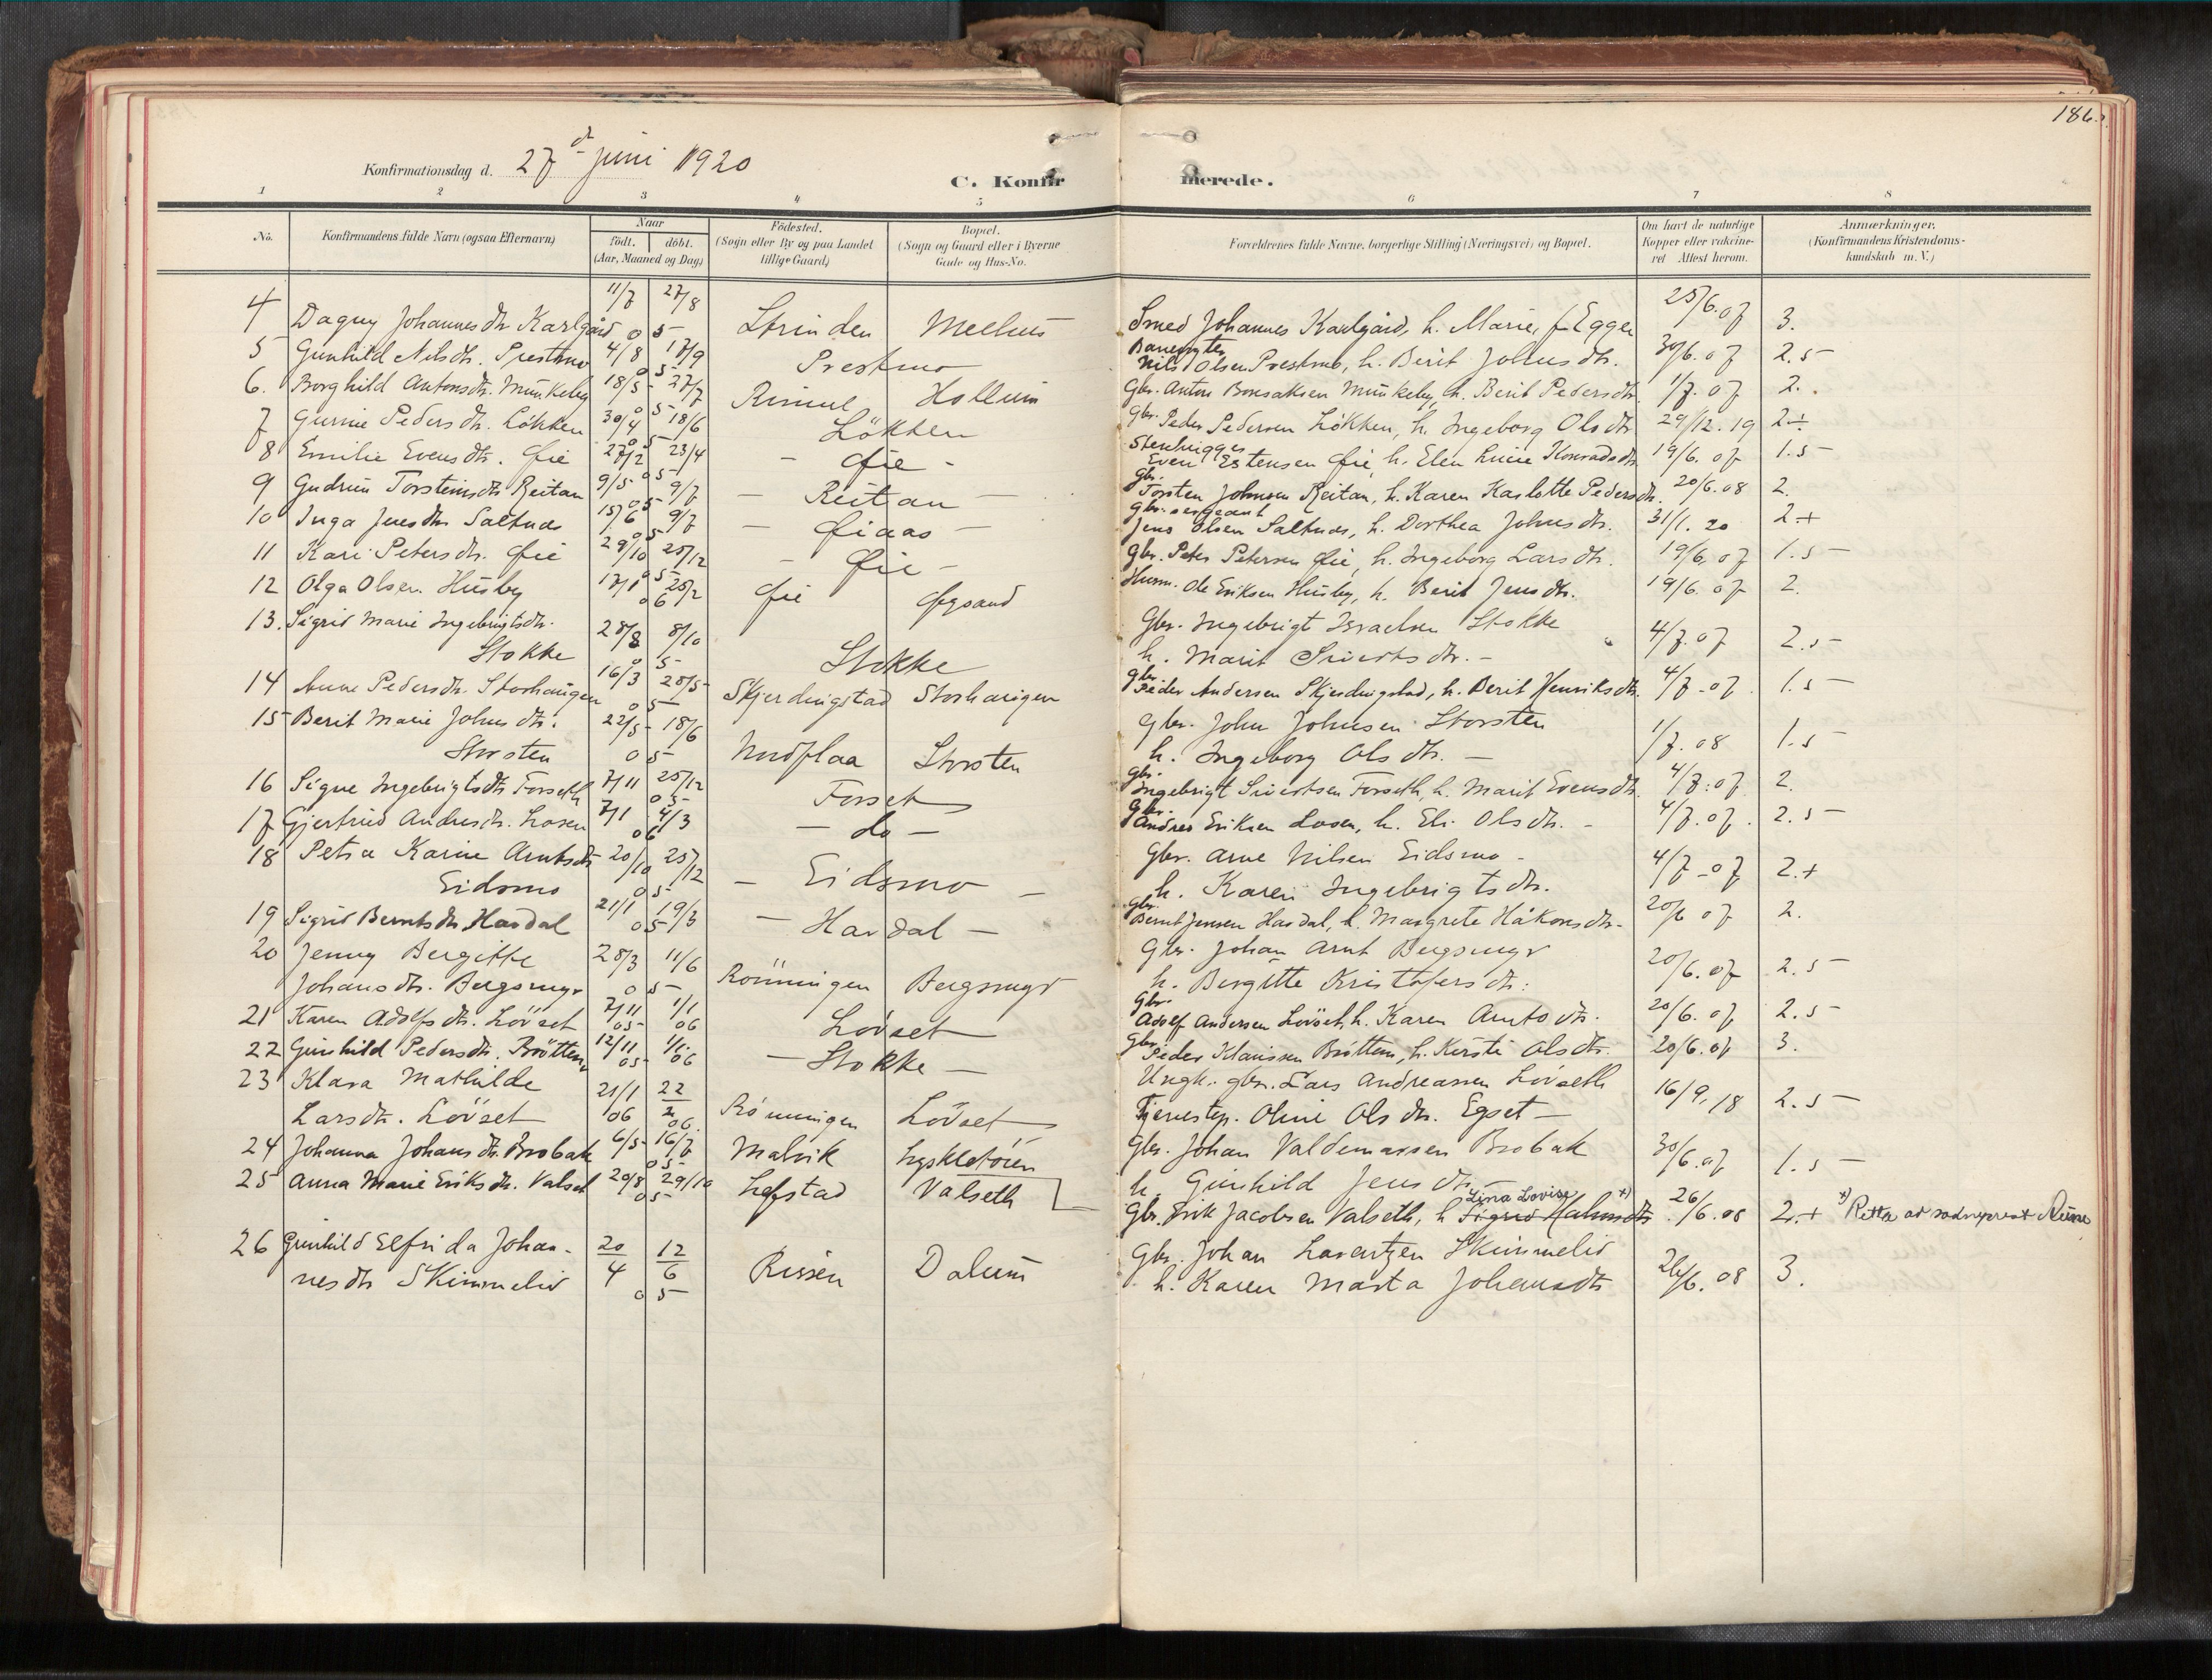 186.
Konfirmationsdag d. 27d juni 1920
C. Konfirmerede.
1 2 3 4 5 6 7 8
No. Konfirmandens fulde Navn (ogsaa Efternavn) Naar födt. döbt. (Aar, Maaned og Dag) Födested. (Sogn eller By og paa Landet tillige Gaard) Bopæl. (Sogn og Gaard eller i Byerne Gade og Hus-No. Forældrenes fulde Navne, borgerlige Stilling (Næringsvei) og Bopæl. Om havt de naturlige Kopper eller vakcineret Attest herom. Anmærkninger. (Konfirmandens Kristendomskundskab m. V.)
4 Dagny Johannesdtr Karlgård 11/7 05 27/8 Strinden Melhus Smed Johannes Karlgård, h. Marie, f. Egger 25/6.07 3.
5 Gunhild Nilsdtr. Prestmo 4/8 05 17/9 Prestmo Nils Olsen Prestmo, h. Berit Johnsdtr. 30/6.07 2.5
6. Borghild Antonsdtr. Munkeby 18/5 05 27/7 Rimul Hollum Gbr. Anton Bonsaksen Munkeby, h. Berit Pedersdtr. 1/7.07 2.
7 Gurine Pedersdtr. Lökken 30/4 05 18/6 Lökken Gbr. Peder Pedersen Lökken, h. Ingeborg Olsdtr 29/12.19 2÷
8 Emilie Evensdtr. Øie 27/2 05 23/4 - Øie - Even Estensen Øie, h. Elen Lucie Konradsdtr 19/6.07 1.5
9 Gudrun Torsteinsdtr Reitan 9/5 05 9/7 - Reitan - Gbr. Torsten Johnsen Reitan, h. Karen Kaslotte Pedersdtr. 20/6.08 2.
10 Inga Jensdtr Saltnes 15/6 05 9/7 - Øiaas - Gbr. sergeant Jens Olsen Saltnes, h. Dorthea Johnsdtr. 31/1.20 2+
11 Kari Petersdtr. Øie 29/10 05 25/12 - Øie - Gbr. Peter Petersen Øie, h. Ingeborg Larsdtr. 19/6.07 1.5
12 Olga Olsen Husby 17/1 06 25/2 Øie Øysand Husm. Ole Eriksen Husby, h. Berit Jensdtr. 19/6.07 2.
13. Sigrid Marie Ingebrigtsdtr. 28/8 8/10 Gbr. Ingebrigt Israelsen Stokke 4/7.07 2.5
Stokke 05 Stokke h. Marit Sivertsdtr. -
14 Anne Pedersdtr. Storhaugen 16/3 05 28/5 Skjerdingstad Storhaugen Gbr. Peder Andersen Skjerdingstad, h. Berit Henriksdtr. 4/7-07. 1.5
15 Berit Marie Johnsdtr. 22/5 18/6 Gbr. John Johnsen Storsten 1/7.08 1.5
Storsten 05 Nordflaa Storsten h. Ingeborg Olsdtr. -
16 Signe Ingebrigtsdtr Forseth 7/11 05 25/12 Forset Gbr. Ingebrigt Sivertsen Forseth, h. Marit Evensdtr. 4/7.07 2.
17 Gjertrud Andresdtr. Losen 7/1 06 4/3 - do - Gbr. Andres Eriksen Losen, h. Eli Olsdtr. - 4/7.07. 2.5
18 Petra Karine Arntsdtr 20/10 25/12 Gbr. Arne Nilsen Eidsmo - 4/7-07 2.+
Eidsmo 05 - Eidsmo - h. Karen Ingebrigtsdtr.
19 Sigrid Berntsdtr Hardal 21/1 05 19/3 - Hardal - Gbr. Bernt Jensen Hardal, h. Margrete Håkonsdtr. 20/6 07 2.
20 Jenny Bergitte 28/3 11/6 Gbr. Johan Arnt Bergsmyr 20/6.07 2.5
Johansdtr. Bergsmyr 05 Rönningen Bergsmyr h. Bergitte Kristofersdtr.
21 Karen Adolfsdtr. Lövset 7/11 05 1/1 06 Lövset Gbr. Adolf Andersen Lövseth, h. Karen Arntsdtr. 20/6.07 2.5
22 Gunhild Pedersdtr. Bröttem 12/11 05 1/1. 06 - Stokke - Gbr. Peder Klausen Bröttem, h. Kersti Olsdtr. 20/6.07 3.
23 Klara Mathilde 21/1 22/2 Ungk. gbr. Lars Andreassen Lövseth 16/9.18 2.5
Larsdtr. Lövset 06 06. Rönningen Lövset Tjenestep. Oline Olsdtr. Egset -
24 Johanna Johansdtr. Brobak 6/5 05 16/7 Malvik Lyskletöien Gbr. Johan Valdemarsen Brobak 30/6.07 1.5
h. Gunhild Jensdtr.
25 Anna Marie Eriksdtr. Valset 20/8 05 29/10 Lefstad Valseth Gbr. Erik Jacobsen Valseth, h Sigrid Halmsdtr Lina Lovise x) 26/6.08 2.+ x) Retta av sodneprest Rune
26 Gunhild Elfrida Johan- 20/4 12/6 Gbr. Johan Lavertzen Skimmelid 26/6.08 3.
nesdtr Skimmelid 05 Rissen Dalum h. Karen Marta Johansdtr